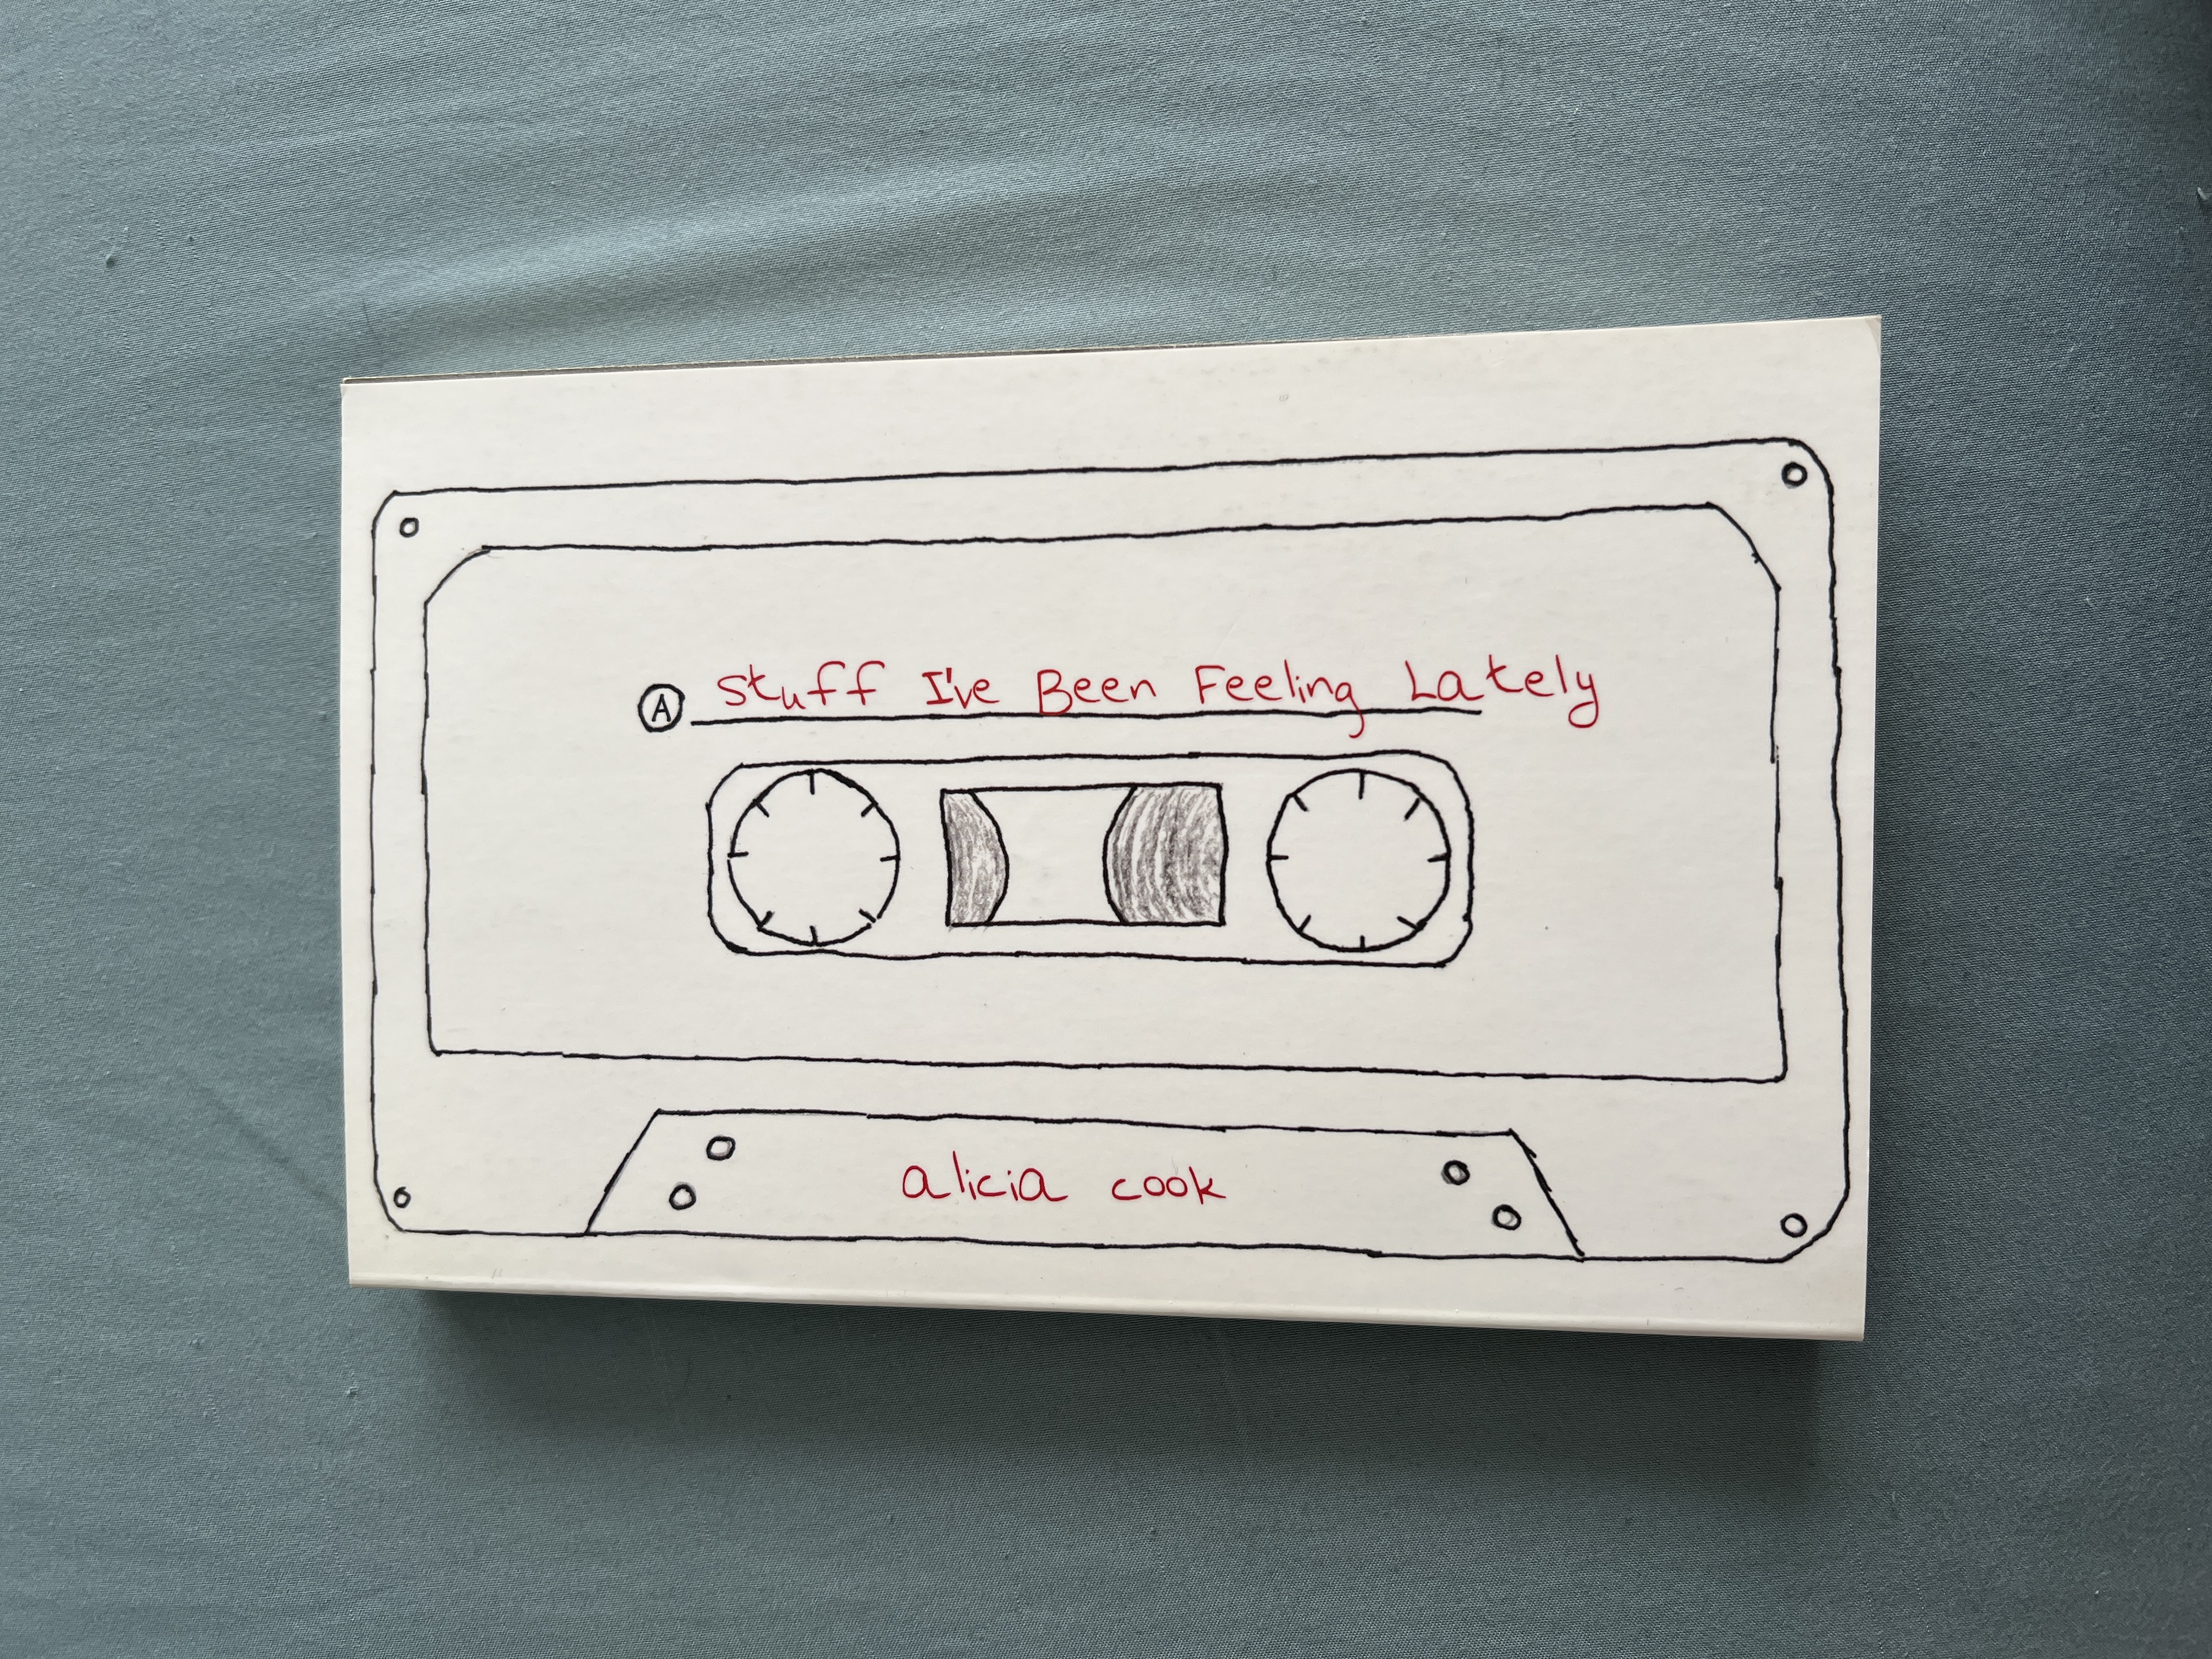 A Stuff I've Been Feeling Lately
alicia cook